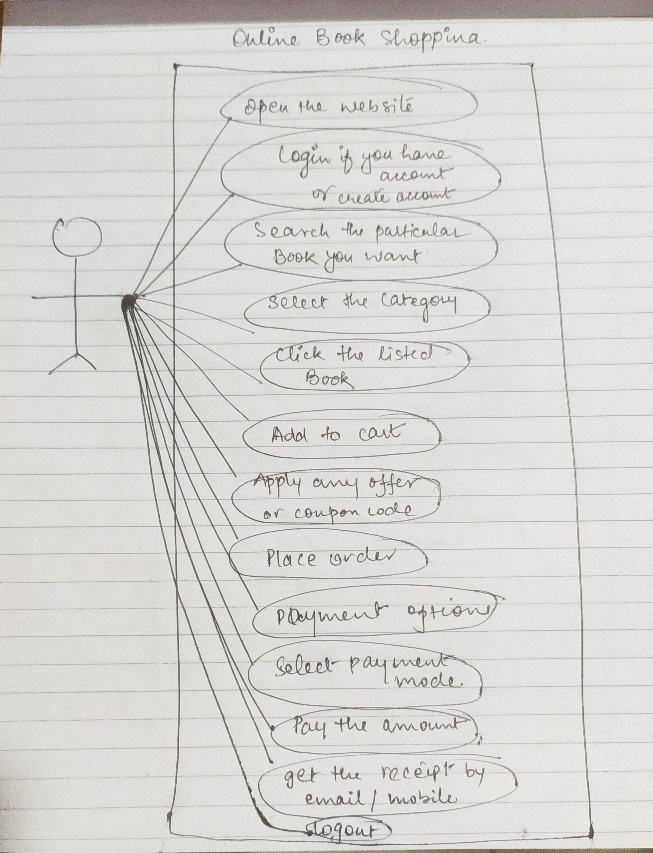 Online Book Shopping.
Open the website
Login if you have
account
or create account
Search the particular
Book you want
Select the Category
Click the listed
Book
Add to cart
Apply any offer
or coupon code
Place order
Payment options
Select payment
mode.
Pay the amount
get the receipt by
email / mobile
logout